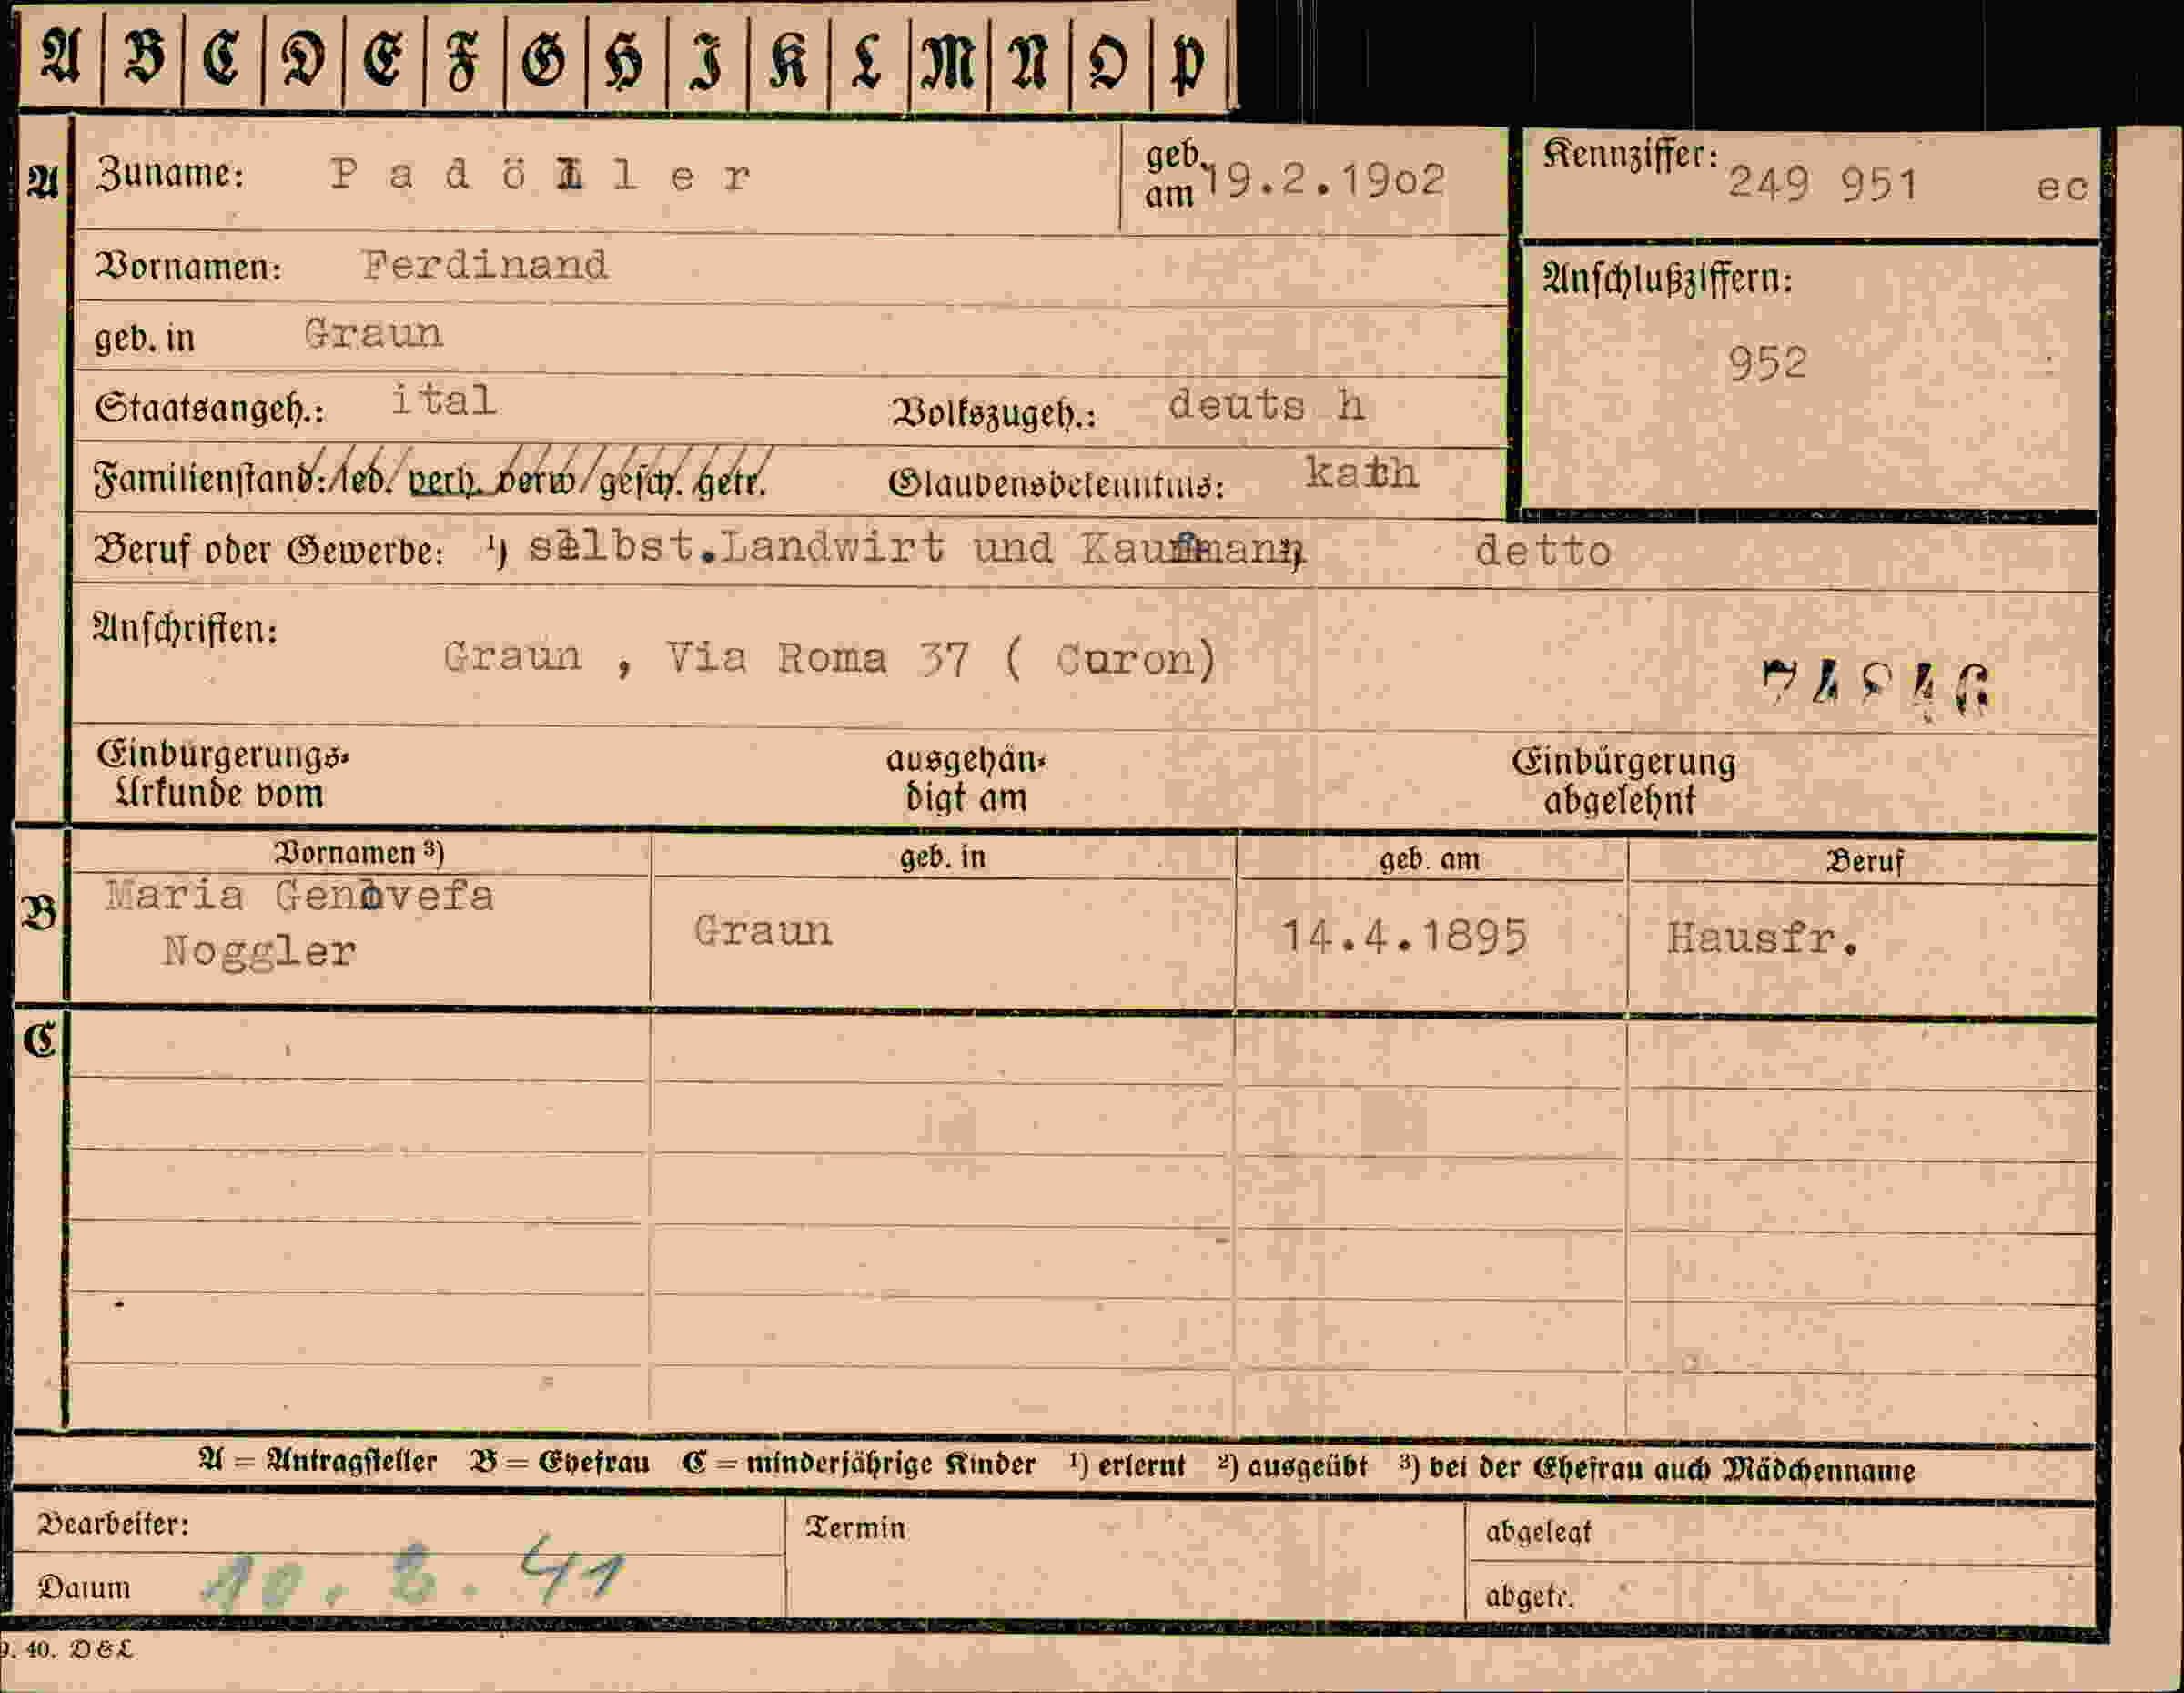 A B C D E F G H I K L M N O P
A Zuname: Padöller geb. am 19.2.19o2 Kennziffer: 249 951 ec
Vornamen: Ferdinand Anschlußziffern:
geb. in Graun 952
Staatsangeh.: ital Volkszugeh.: deuts h
Familienstand: led. verh. verw. gesch. getr. Glaubensbekenntnis: kath
Beruf oder Gewerbe: ¹) selbst.Landwirt und Kaufmann, detto
Anschriften:
Graun , Via Roma 37 ( Curon)
Einbürgerungs- ausgehän- Einbürgerung
Urkunde vom digt am abgelehnt
Vornamen ³) geb. in geb. am Beruf
B Maria Genovefa
Noggler Graun 14.4.1895 Hausfr.
C
A = Antragsteller B = Ehefrau C = minderjährige Kinder ¹) erlernt ²) ausgeübt ³) bei der Ehefrau auch Mädchenname
Bearbeiter: Termin abgelegt
Datum 10. 8. 41 abgetr.
40. D & L